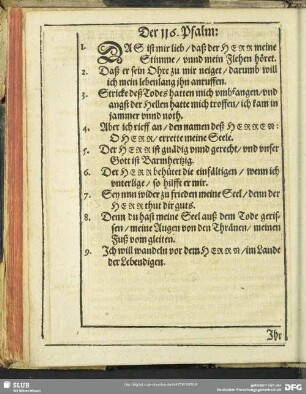 Der 116. Psalm:
1. DAS ist mir lieb / daß der HERR meine
Stimme / vnnd mein Flehen höret.
2. Daß er sein Ohre zu mir neiget / darumb will
ich mein lebenlang jhn anruffen.
3. Stricke deß Todes hatten mich vmbfangen / vnd
angst der Hellen hatte mich troffen / ich kam in
jammer vnnd noth.
4. Aber ich rieff an / den namen deß HERREN:
O HERR / errette meine Seele.
5. Der HERR ist gnädig vnnd gerecht / vnd vnser
Gott ist Barmhertzig.
6. Der HERR behütet die einfältigen / wenn ich
vnterlige / so hilfft er mir.
7. Sey nun wider zu frieden meine Seel / denn der
HERR thut dir guts.
8. Denn du hast meine Seel auß dem Tode geris-
sen / meine Augen von den Thränen / meinen
Fuß vom gleiten.
9. Ich will wandeln vor dem HERRN / im Lande
der Lebendigen.
Ihr
SLUB
Wir führen Wissen.